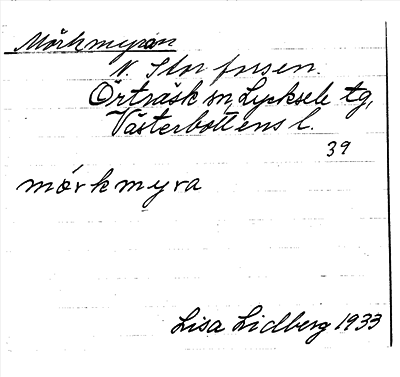 Mörkmyran
N. Storforsen.
Örträsk sn, Lycksele tg,
Västerbottens l.
39
mörkmyra
Lisa Lidberg 1933